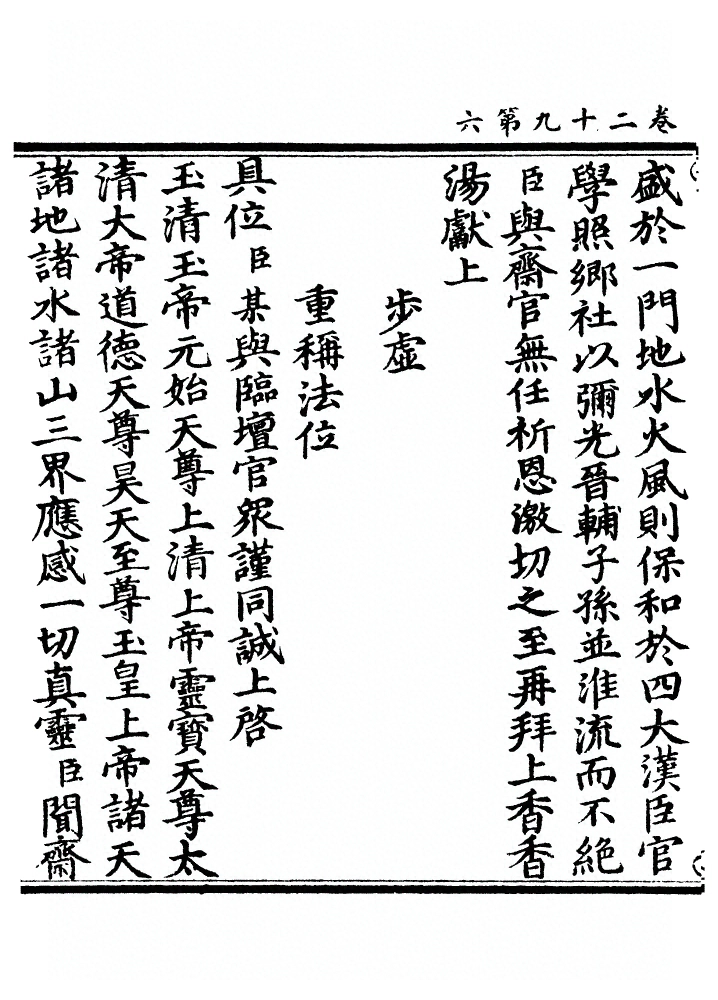 卷二十九第六
盛於一門地水火風則保和於四大漢臣官
學照鄉社以彌光晉輔子孫並淮流而不絕
臣與齋官無任祈恩激切之至再拜上香香
湯獻上
步虛
重稱法位
具位臣某與臨壇官眾謹同誠上啓
玉清玉帝元始天尊上清上帝靈寶天尊太
清大帝道德天尊昊天至尊玉皇上帝諸天
諸地諸水諸山三界應感一切真靈臣聞齋